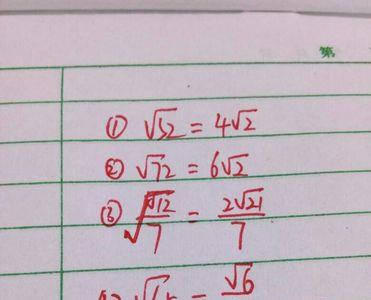 第
① √32 = 4√2
② √72 = 6√2
③ √(√12/7) = 2√21/7
= √6